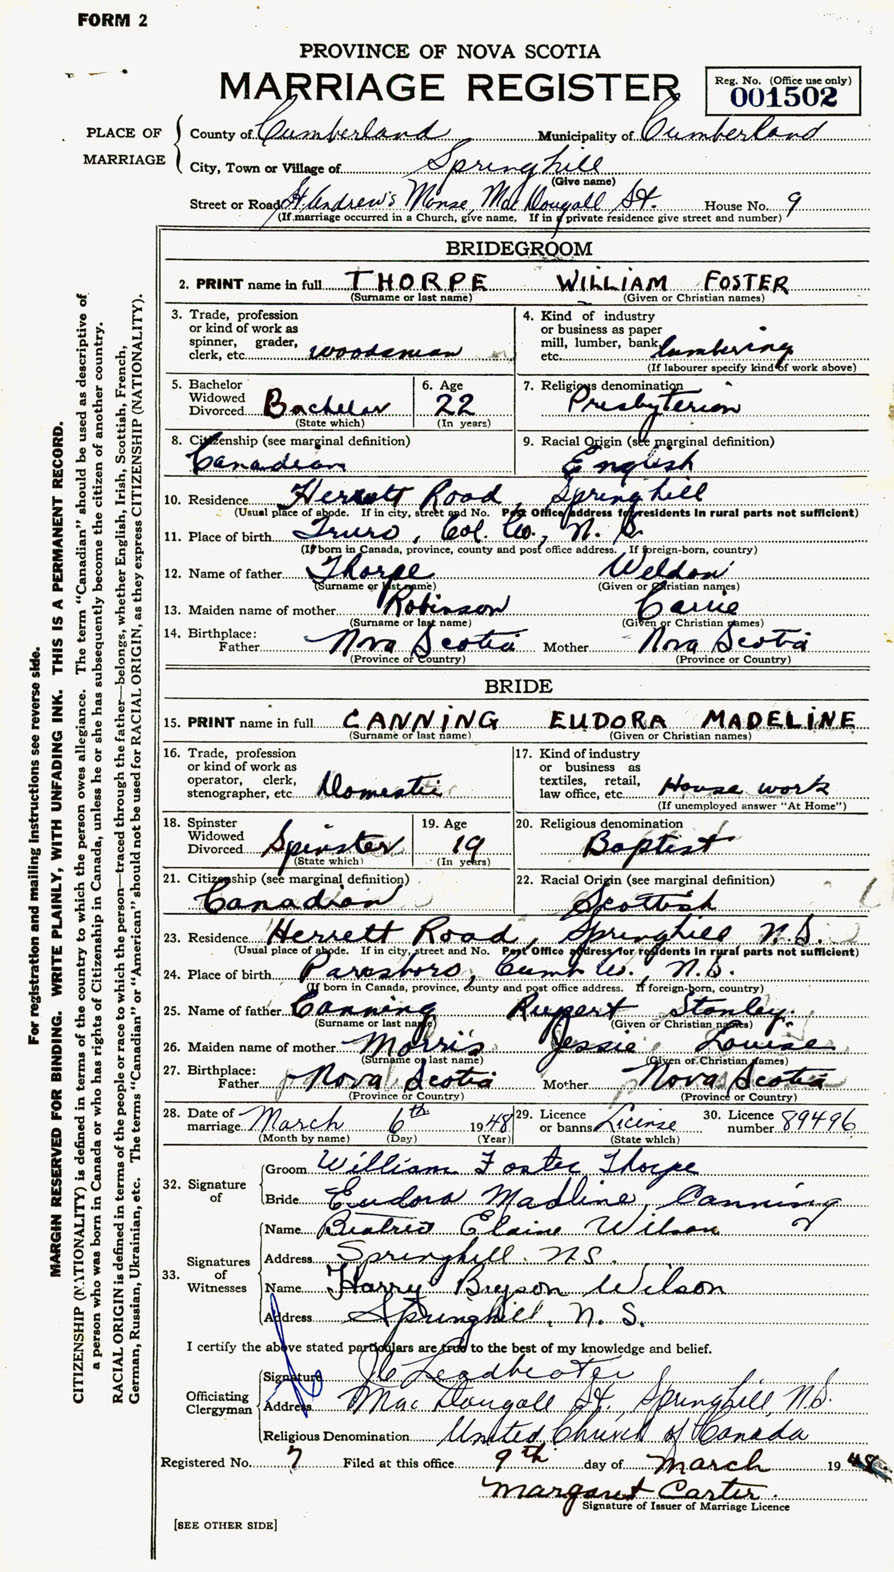 FORM 2
PROVINCE OF NOVA SCOTIA
MARRIAGE REGISTER
Reg. No. (Office use only)
001502
PLACE OF MARRIAGE
County of Cumberland Municipality of Cumberland
City, Town or Village of Springhill
(Give name)
Street or Road St. Andrew's Manse, MacDougall St. House No. 9
(If marriage occurred in a Church, give name. If in a private residence give street and number)
BRIDEGROOM
2. PRINT name in full THORPE WILLIAM FOSTER
(Surname or last name) (Given or Christian names)
3. Trade, profession or kind of work as spinner, grader, clerk, etc. woodsman
4. Kind of industry or business as paper mill, lumber, bank etc. lumbering
(If labourer specify kind of work above)
5. Bachelor Widowed Divorced Bachelor
(State which)
6. Age 22
(In years)
7. Religious denomination Presbyterian
8. Citizenship (see marginal definition) Canadian
9. Racial Origin (see marginal definition) English
10. Residence Herrett Road, Springhill
(Usual place of abode. If in city, street and No. Post Office address for residents in rural parts not sufficient)
11. Place of birth Truro, Col. Co., N. S.
(If born in Canada, province, county and post office address. If foreign-born, country)
12. Name of father Thorpe Weldon
(Surname or last name) (Given or Christian names)
13. Maiden name of mother Robinson Carrie
(Surname or last name) (Given or Christian names)
14. Birthplace: Father Nova Scotia Mother Nova Scotia
(Province or Country) (Province or Country)
BRIDE
15. PRINT name in full CANNING EUDORA MADELINE
(Surname or last name) (Given or Christian names)
16. Trade, profession or kind of work as operator, clerk, stenographer, etc. Domestic
17. Kind of industry or business as textiles, retail, law office, etc. House work
(If unemployed answer "At Home")
18. Spinster Widowed Divorced Spinster
(State which)
19. Age 19
(In years)
20. Religious denomination Baptist
21. Citizenship (see marginal definition) Canadian
22. Racial Origin (see marginal definition) Scottish
23. Residence Herrett Road, Springhill N.S.
(Usual place of abode. If in city, street and No. Post Office address for residents in rural parts not sufficient)
24. Place of birth Parrsboro, Cumb Co., N.S.
(If born in Canada, province, county and post office address. If foreign-born, country)
25. Name of father Canning Rupert Stanley
(Surname or last name) (Given or Christian names)
26. Maiden name of mother Morris Jessie Louise
(Surname or last name) (Given or Christian names)
27. Birthplace: Father Nova Scotia Mother Nova Scotia
(Province or Country) (Province or Country)
28. Date of marriage March 6th 1948
(Month by name) (Day) (Year)
29. Licence or banns License
(State which)
30. Licence number 89496
32. Signature of
Groom William Foster Thorpe
Bride Eudora Madline Canning
33. Signatures of Witnesses
Name Beatrice Elaine Wilson
Address Springhill. N.S.
Name Harry Bryson Wilson
Address Springhill, N. S.
I certify the above stated particulars are true to the best of my knowledge and belief.
Officiating Clergyman
Signature Leadbeater
Address MacDougall St., Springhill, N.S.
Religious Denomination United Church of Canada
Registered No. 7 Filed at this office 9th day of March 1948.
Margaret Carter.
Signature of Issuer of Marriage Licence
[SEE OTHER SIDE]
For registration and mailing instructions see reverse side.
MARGIN RESERVED FOR BINDING. WRITE PLAINLY, WITH UNFADING INK. THIS IS A PERMANENT RECORD.
CITIZENSHIP (NATIONALITY) is defined in terms of the country to which the person owes allegiance. The term "Canadian" should be used as descriptive of
a person who was born in Canada or who has rights of Citizenship in Canada, unless he or she has subsequently become the citizen of another country.
RACIAL ORIGIN is defined in terms of the people or race to which the person—traced through the father—belongs, whether English, Irish, Scottish, French,
German, Russian, Ukrainian, etc. The terms "Canadian" or "American" should not be used for RACIAL ORIGIN, as they express CITIZENSHIP (NATIONALITY).